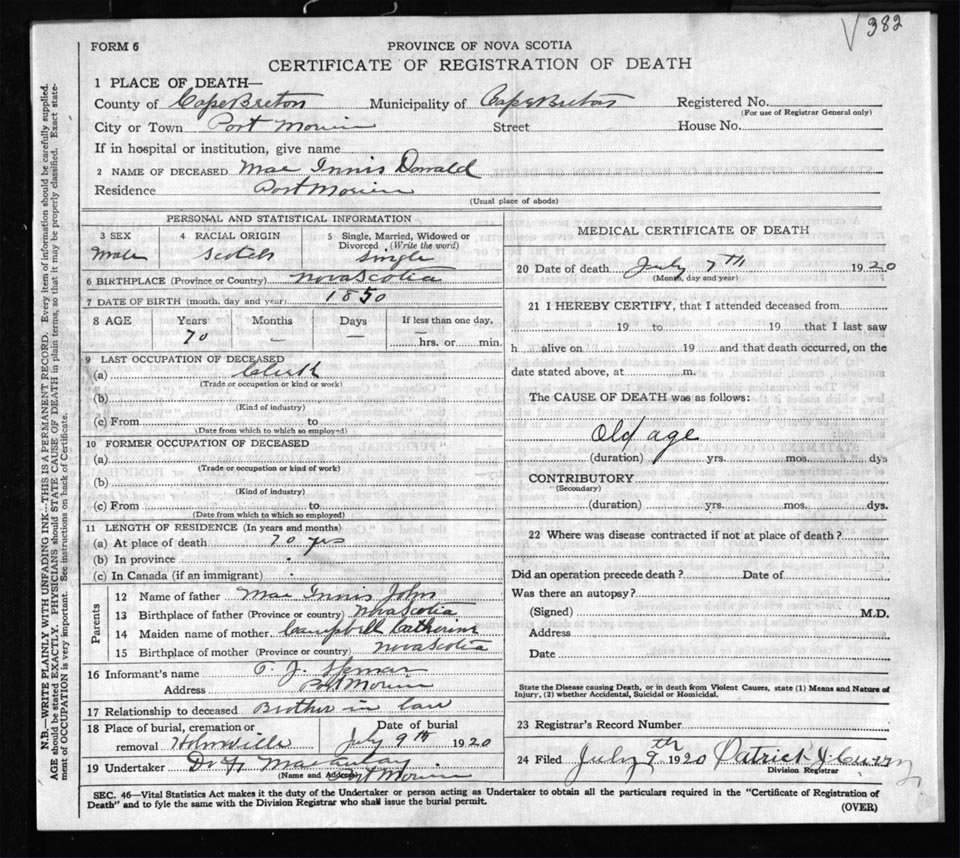 √ 382
FORM 6
PROVINCE OF NOVA SCOTIA
CERTIFICATE OF REGISTRATION OF DEATH
1 PLACE OF DEATH—
County of Cape Breton Municipality of Cape Breton Registered No.
(For use of Registrar General only)
City or Town Port Morien Street House No.
If in hospital or institution, give name
2 NAME OF DECEASED Mac Innis Donald
Residence Port Morien
(Usual place of abode)
PERSONAL AND STATISTICAL INFORMATION
3 SEX 4 RACIAL ORIGIN 5 Single, Married, Widowed or Divorced (Write the word)
Male Scotch Single
6 BIRTHPLACE (Province or Country) Nova Scotia
7 DATE OF BIRTH (month, day and year) 1850
8 AGE Years Months Days If less than one day,
70 — — — hrs. or min.
9 LAST OCCUPATION OF DECEASED
(a) Clerk
(Trade or occupation or kind or work)
(b)
(Kind of industry)
(c) From to
(Date from which to which so employed)
10 FORMER OCCUPATION OF DECEASED
(a)
(Trade or occupation or kind of work)
(b)
(Kind of industry)
(c) From to
(Date from which to which so employed)
11 LENGTH OF RESIDENCE (In years and months)
(a) At place of death 70 yrs
(b) In province "
(c) In Canada (if an immigrant) "
Parents
12 Name of father Mac Innis John
13 Birthplace of father (Province or country) Nova Scotia
14 Maiden name of mother Campbell Catherine
15 Birthplace of mother (Province or country) Nova Scotia
16 Informant's name J.
Address Port Morien
17 Relationship to deceased Brother in law
18 Place of burial, cremation or Date of burial
removal Homeville July 9th 1920
19 Undertaker
(Name and Address) Port Morien
MEDICAL CERTIFICATE OF DEATH
20 Date of death July 7th 1920
(Month, day and year)
21 I HEREBY CERTIFY, that I attended deceased from
19 to 19 that I last saw
h alive on 19 and that death occurred, on the
date stated above, at m.
The CAUSE OF DEATH was as follows:
Old age
(duration) yrs. mos. dys
CONTRIBUTORY
(Secondary)
(duration) yrs. mos. dys.
22 Where was disease contracted if not at place of death?
Did an operation precede death? Date of
Was there an autopsy?
(Signed) M.D.
Address
Date
State the Disease causing Death, or in death from Violent Causes, state (1) Means and Nature of
Injury, (2) whether Accidental, Suicidal or Homicidal.
23 Registrar's Record Number
24 Filed July 9th 1920 Patrick J Curry
Division Registrar
SEC. 46—Vital Statistics Act makes it the duty of the Undertaker or person acting as Undertaker to obtain all the particulars required in the "Certificate of Registration of
Death" and to fyle the same with the Division Registrar who shall issue the burial permit.
(OVER)
N.B.—WRITE PLAINLY, WITH UNFADING INK—THIS IS A PERMANENT RECORD. Every item of information should be carefully supplied.
AGE should be stated EXACTLY. PHYSICIANS should STATE CAUSE OF DEATH in plain terms, so that it may be properly classified. Exact state-
ment of OCCUPATION is very important. See instructions on back of Certificate.